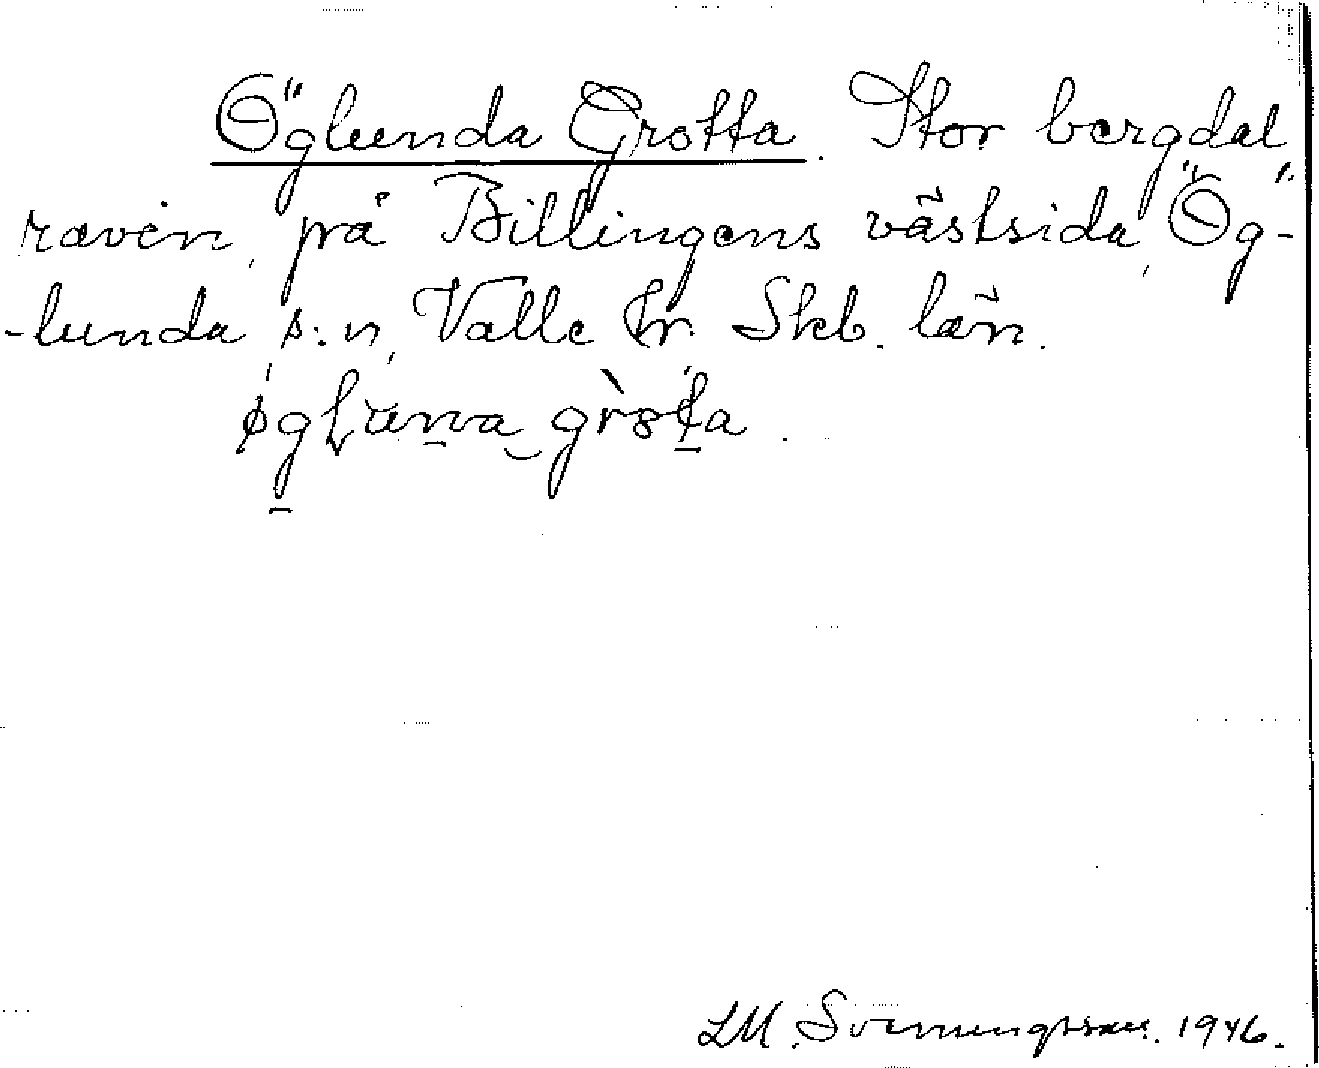 Öglunda Grotta. Stor bergdal,
ravin, på Billingens västsida, Ög-
-lunda s:n, Valle hr. Skb. län.
L M. Svenungsson. 1946.